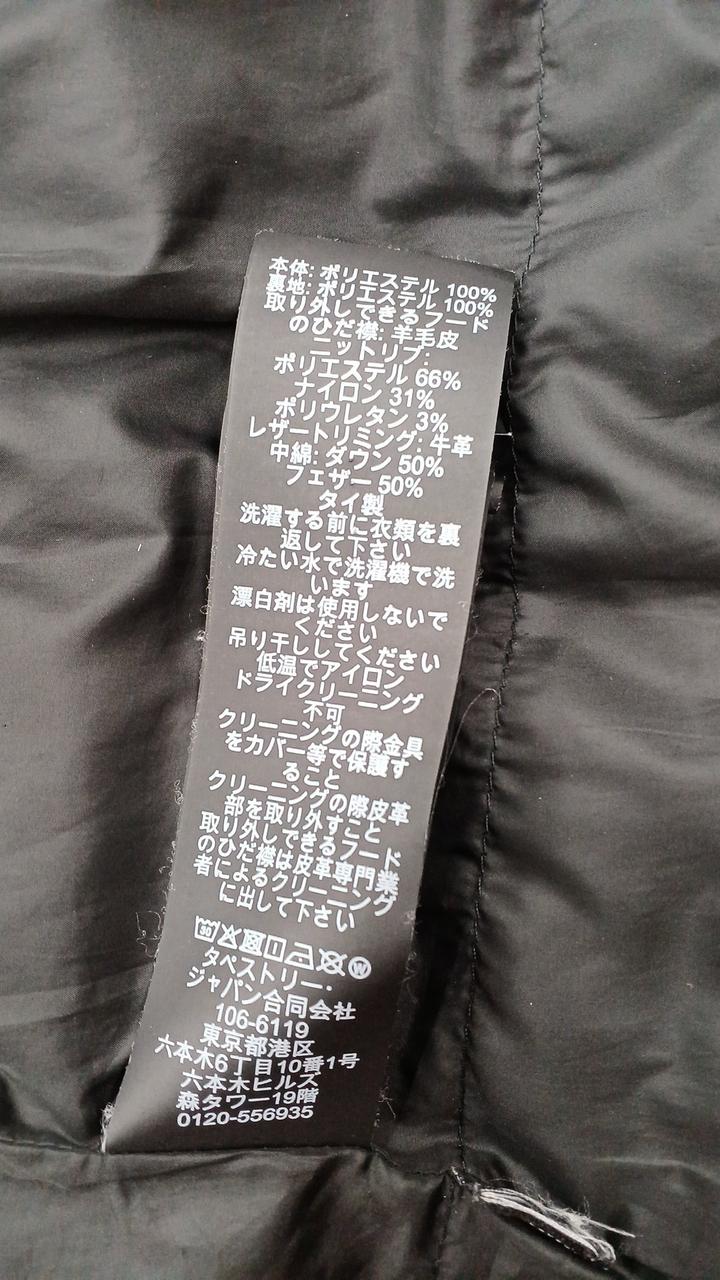 本体: ポリエステル 100%
裏地: ポリエステル 100%
取り外しできるフード
のひだ襟: 羊毛皮
ニットリブ:
ポリエステル 66%
ナイロン 31%
ポリウレタン 3%
レザートリミング: 牛革
中綿: ダウン 50%
フェザー 50%
タイ製
洗濯する前に衣類を裏
返して下さい
冷たい水で洗濯機で洗
います
漂白剤は使用しないで
ください
吊り干ししてください
低温でアイロン
ドライクリーニング
不可
クリーニングの際金具
をカバー等で保護す
ること
クリーニングの際皮革
部を取り外すこと
取り外しできるフード
のひだ襟は皮革専門業
者によるクリーニング
に出して下さい
30 W
タペストリー・
ジャパン合同会社
106-6119
東京都港区
六本木6丁目10番1号
六本木ヒルズ
森タワー19階
0120-556935